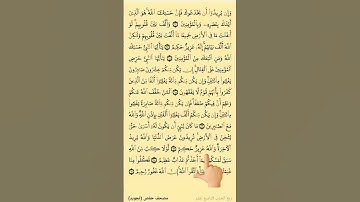 وَإِن يُرِيدُوٓا۟ أَن يَخْدَعُوكَ فَإِنَّ حَسْبَكَ ٱللَّهُ هُوَ ٱلَّذِىٓ
أَيَّدَكَ بِنَصْرِهِۦ وَبِٱلْمُؤْمِنِينَ وَأَلَّفَ بَيْنَ قُلُوبِهِمْ لَوْ
أَنفَقْتَ مَا فِى ٱلْأَرْضِ جَمِيعًا مَّآ أَلَّفْتَ بَيْنَ قُلُوبِهِمْ وَلَـٰكِنَّ
ٱللَّهَ أَلَّفَ بَيْنَهُمْ إِنَّهُۥ عَزِيزٌ حَكِيمٌ يَـٰٓأَيُّهَا ٱلنَّبِىُّ حَسْبُكَ
ٱللَّهُ وَمَنِ ٱتَّبَعَكَ مِنَ ٱلْمُؤْمِنِينَ يَـٰٓأَيُّهَا ٱلنَّبِىُّ حَرِّضِ
ٱلْمُؤْمِنِينَ عَلَى ٱلْقِتَالِ إِن يَكُن مِّنكُمْ عِشْرُونَ صَـٰبِرُونَ
يَغْلِبُوا۟ مِا۟ئَتَيْنِ وَإِن يَكُن مِّنكُم مِّا۟ئَةٌ يَغْلِبُوٓا۟ أَلْفًا مِّنَ
ٱلَّذِينَ كَفَرُوا۟ بِأَنَّهُمْ قَوْمٌ لَّا يَفْقَهُونَ ٱلْـَٔـٰنَ خَفَّفَ ٱللَّهُ
عَنكُمْ وَعَلِمَ أَنَّ فِيكُمْ ضَعْفًا فَإِن يَكُن مِّنكُم مِّا۟ئَةٌ صَابِرَةٌ
يَغْلِبُوا۟ مِا۟ئَتَيْنِ وَإِن يَكُن مِّنكُمْ أَلْفٌ يَغْلِبُوٓا۟ أَلْفَيْنِ بِإِذْنِ ٱللَّهِ وَٱللَّهُ
مَعَ ٱلصَّـٰبِرِينَ مَا كَانَ لِنَبِىٍّ أَن يَكُونَ لَهُۥٓ أَسْرَىٰ حَتَّىٰ
يُثْخِنَ فِى ٱلْأَرْضِ تُرِيدُونَ عَرَضَ ٱلدُّنْيَا وَٱللَّهُ يُرِيدُ
ٱلْـَٔاخِرَةَ وَٱللَّهُ عَزِيزٌ حَكِيمٌ لَّوْلَا كِتَـٰبٌ مِّنَ ٱللَّهِ
سَبَقَ لَمَسَّكُمْ أَخَذْتُمْ عَذَابٌ عَظِيمٌ فَكُلُوا۟ مِمَّا
ٱتَّقُوا۟ ٱللَّهَ إِنَّ ٱللَّهَ غَفُورٌ رَّحِيمٌ
مصحف حفص (تجويد)